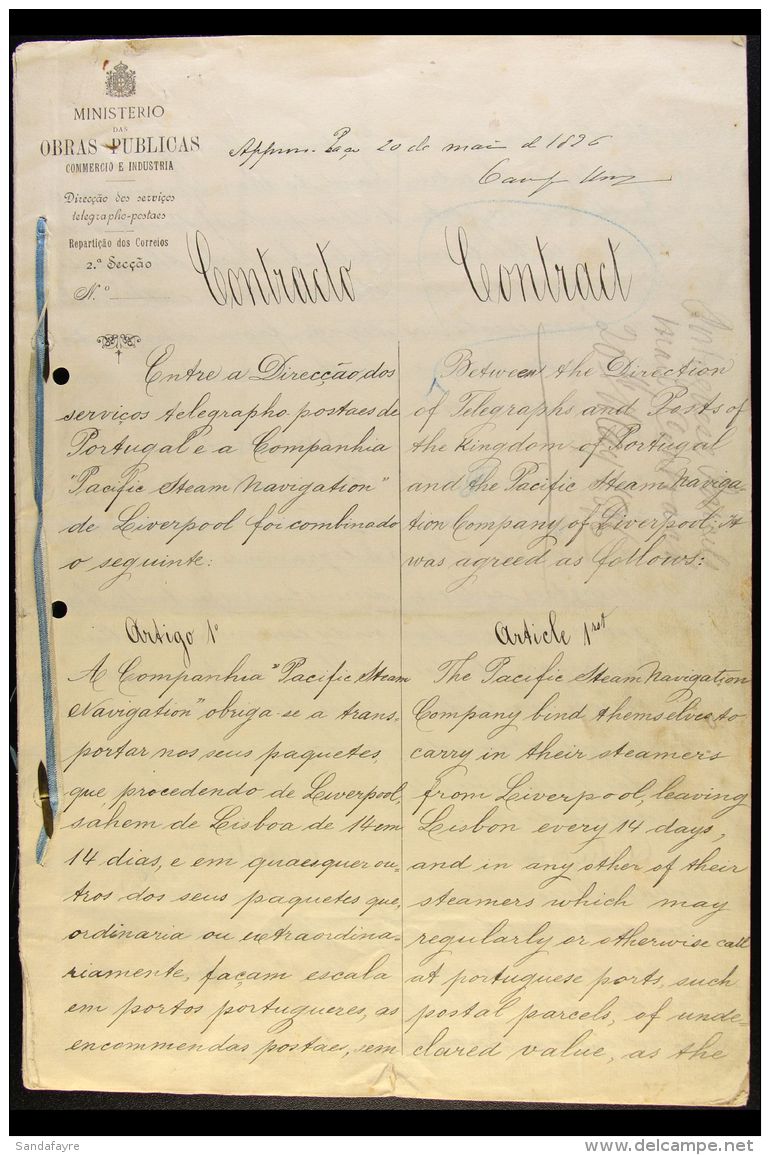 MINISTERIO
DAS
OBRAS PUBLICAS
COMMERCIO E INDUSTRIA
Direcção dos serviços
telegrapho-postaes
Repartição dos Correios
2.ª Secção
N.º
20 de maio de 1896
Contracto
Entre a Direcção dos
serviços telegrapho-postaes de
Portugal e a Companhia
"Pacific Steam Navigation"
de Liverpool foi combinado
o seguinte:
Artigo 1º
A Companhia "Pacific Steam
Navigation" obriga-se a trans-
portar nos seus paquetes,
que procedendo de Liverpool,
sahem de Lisboa de 14 em
14 dias, e em quaesquer ou-
tros dos seus paquetes que,
ordinaria ou extraordina-
riamente, façam escala
em portos portuguezes, as
encommendas postaes, sem
Contract
Between the Direction
of Telegraphs and Posts of
the Kingdom of Portugal
and the Pacific Steam Naviga-
tion Company of Liverpool; it
was agreed as follows:
Article 1rst
The Pacific Steam Navigation
Company bind themselves to
carry in their steamers
from Liverpool, leaving
Lisbon every 14 days,
and in any other of their
steamers which may
regularly or otherwise call
at portuguese ports, such
postal parcels, of unde-
clared value, as the
Sandafayre
delcampe.net